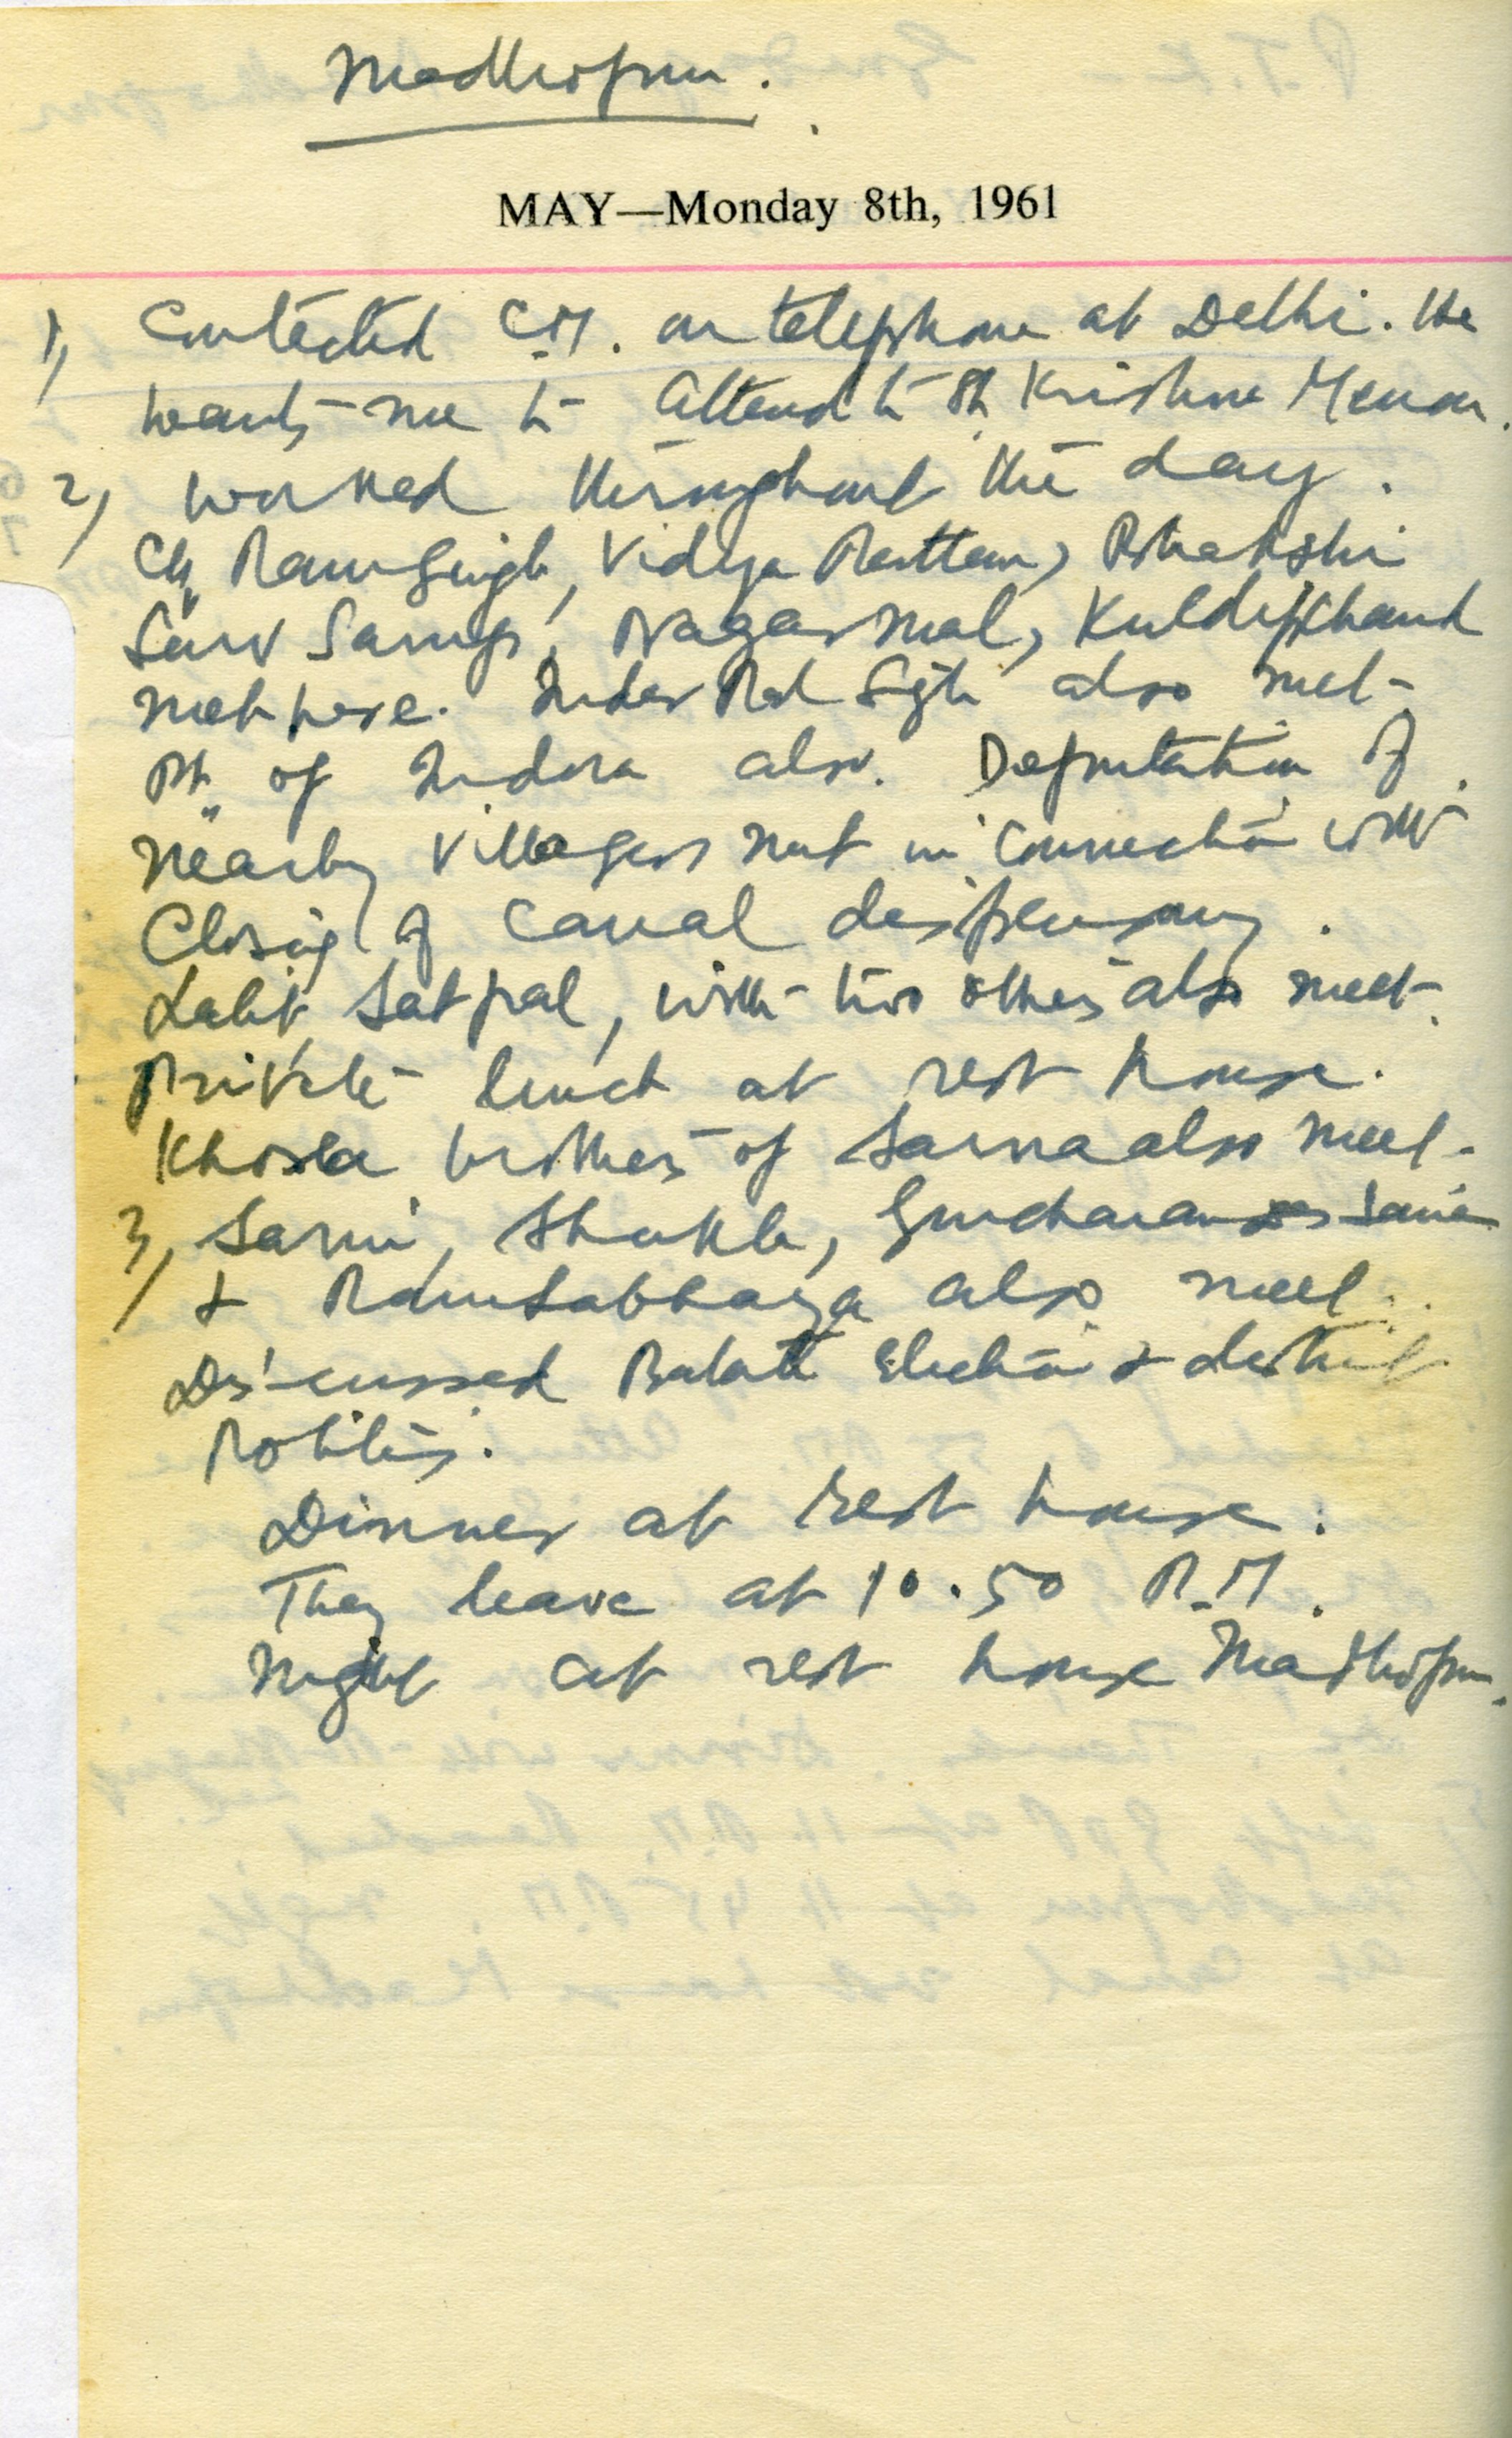 Madhopur.
MAY—Monday 8th, 1961
1) Contected C.M. on telephone at Delhi. He
wants me to attend to Sh. Krishna Menon.
2) Worked throughout the day.
Ch. Ram Singh, Vidya Rattan, Bhakshi
Sarv Sarup, Nagar Mal, Kuldip Chand
met here. Inder Pal Sgh also met.
Pt. of Indora also. Deputation of
nearby villagers met in connection with
Closing of Canal dispensary.
Lalit, Satpal, with two others also meet.
Private lunch at rest house.
Khosla brothers of Sarna also meet.
3) Saini, Shukla, Gurcharan Saini
& Ram Sabhaya also meet.
Discussed Batala Election & district
Politics.
Dinner at rest house.
They leave at 10.50 P.M.
Night at rest house Madhopur.